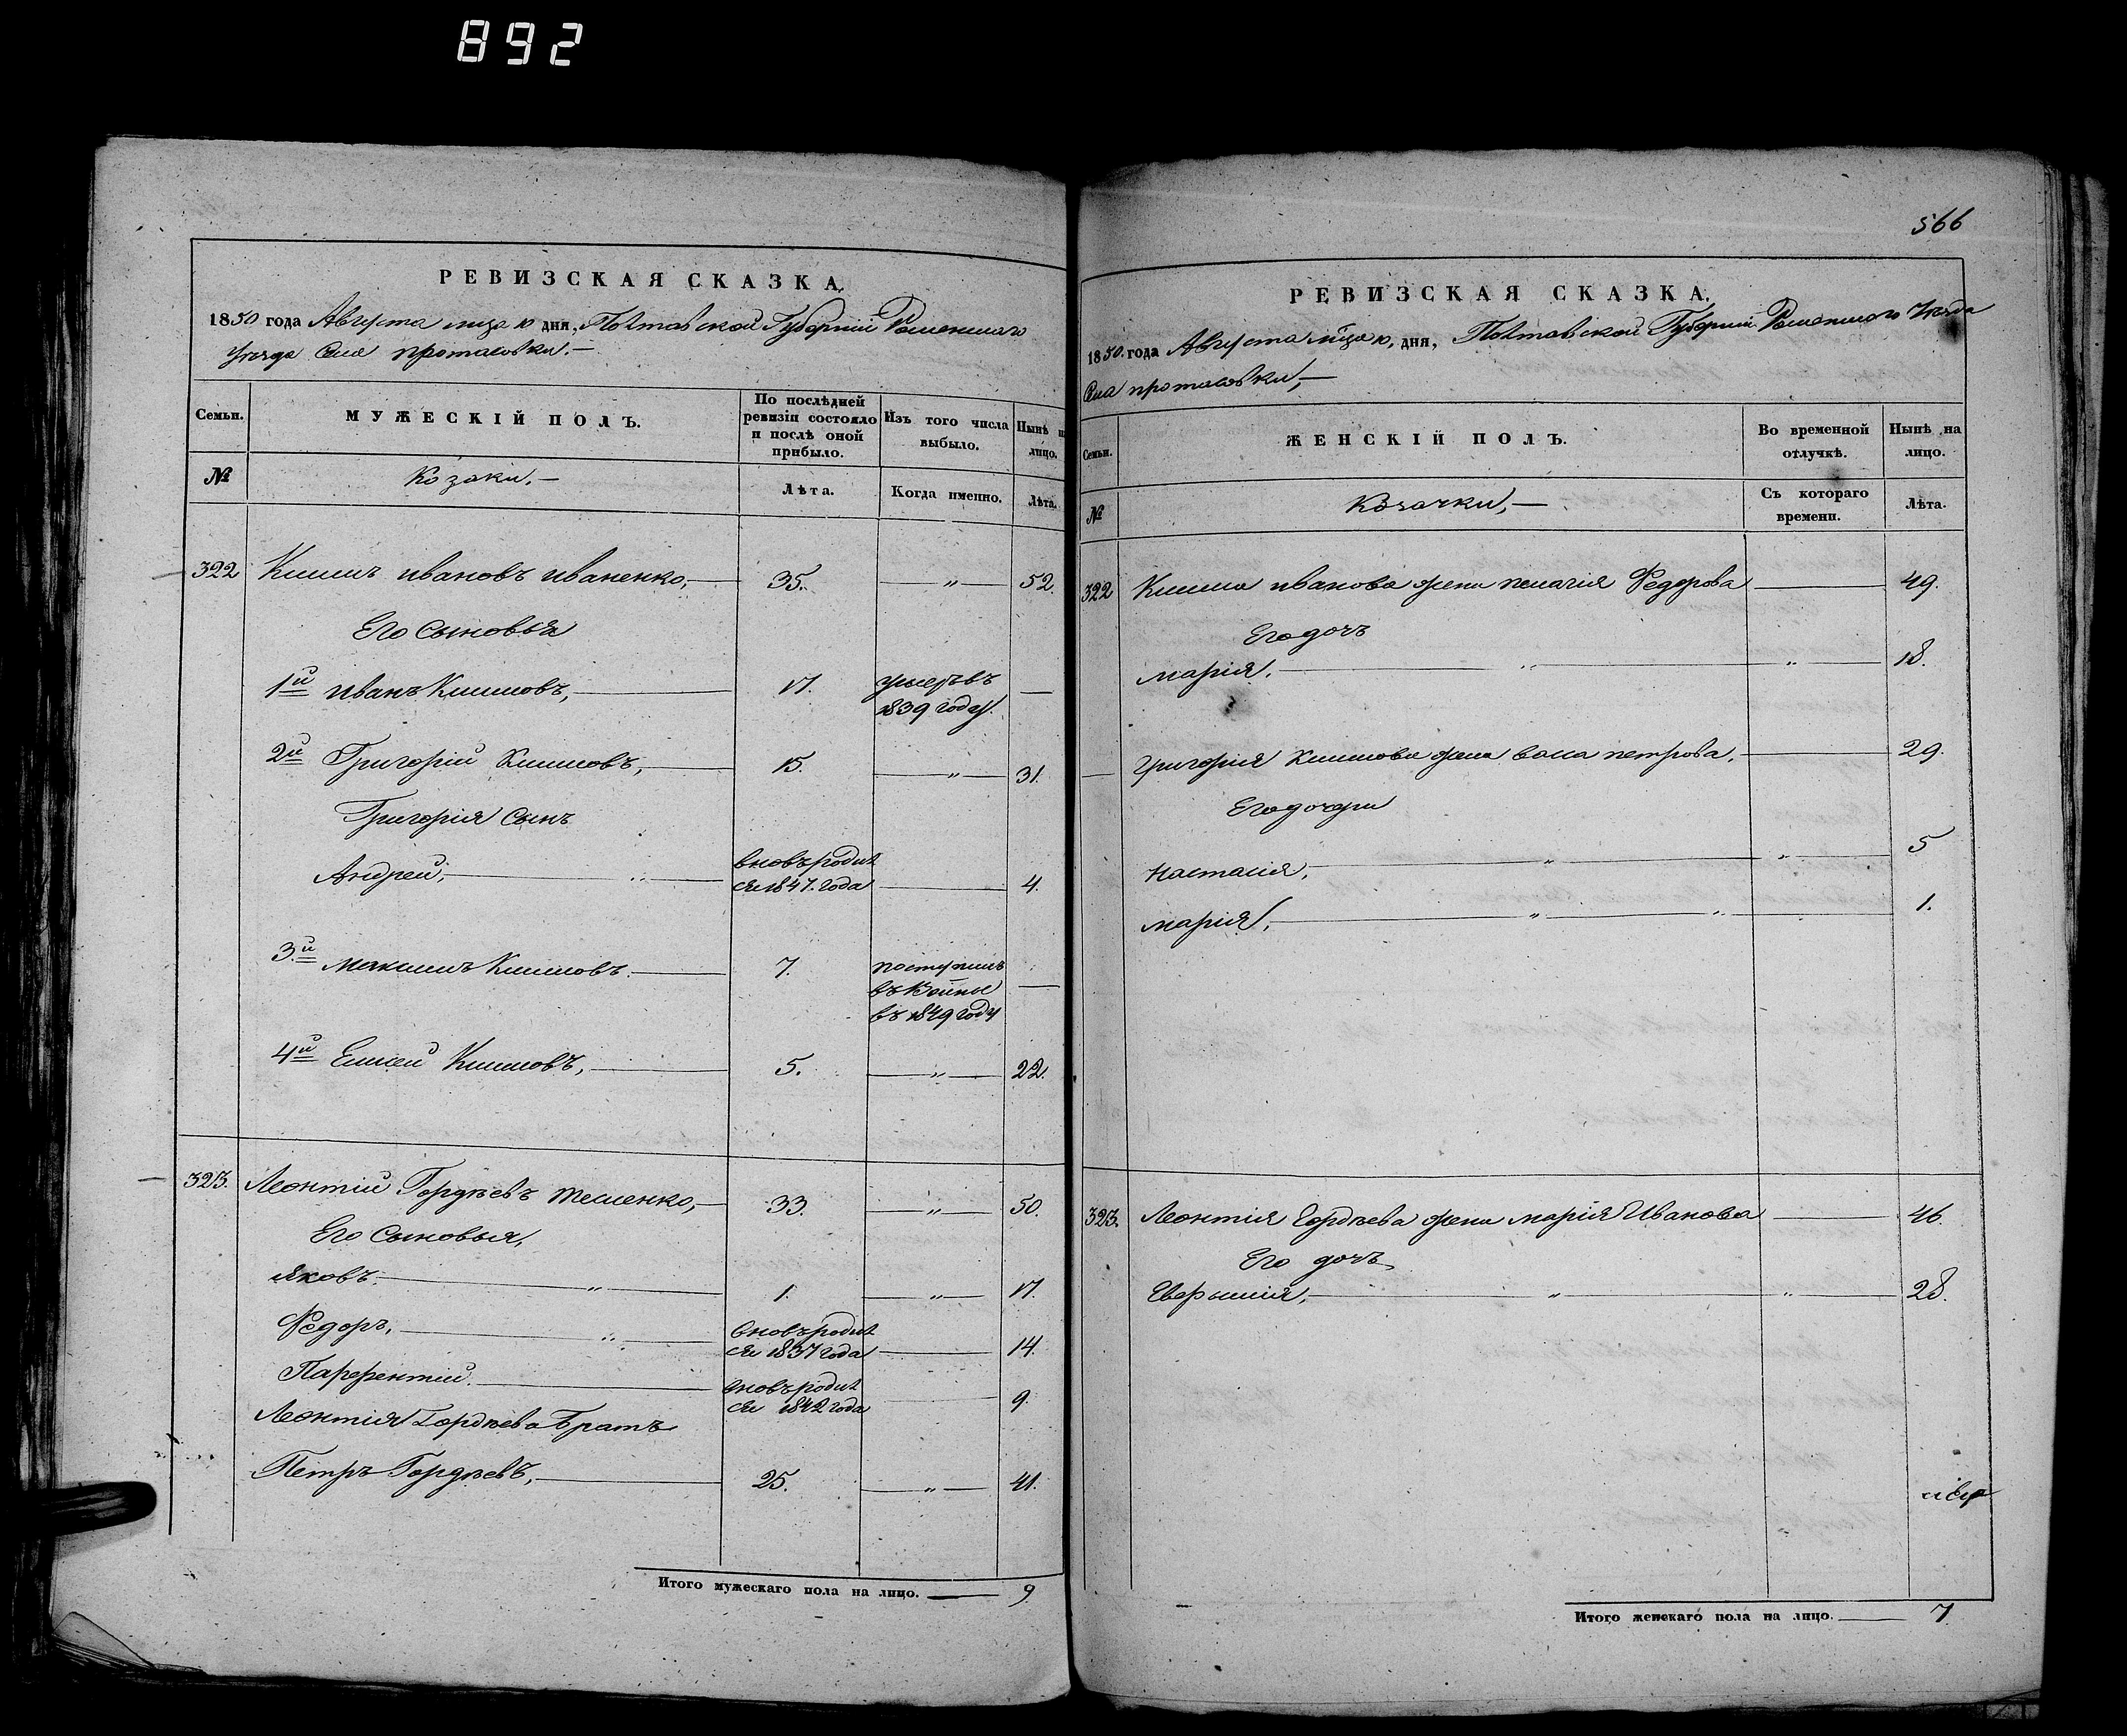 892
РЕВИЗСКАЯ СКАЗКА,
1850 года Августа мца 10 дня, Полтавской Губерніи Роменского
уезда Села протасовки.—
Семьи.
МУЖЕСКІЙ ПОЛЪ.
По послѣдней ревизіи состояло и послѣ оной прибыло.
Изъ того числа выбыло.
Нынѣ на лицо.
№
Козаки.—
Лѣта.
Когда именно.
Лѣта.
322 Климъ ивановъ иваненко, 35. — „ — 52.
Его Сыновья
1й иванъ Климовъ, 17. умеръ въ —
1839 году.
2й Григорій Климовъ, 15. — „ — 31.
Григорія Сынъ
Андрей, вновь родил
ся 1847. года 4.
3й максимъ Климовъ. 7. поступилъ —
въ 1849 году
4й Елисей Климовъ, 5. — „ — 22.
323. Леонтій Гордѣевъ 33. — „ — 50.
Его Сыновья,
Яковъ. „ 1. — „ — 17.
Федоръ, „ вновь родил
ся 1837 года 14.
Парфентій. вновь родил
ся 1842 года 9.
Леонтія Гордѣева братъ
Петръ Гордѣевъ, 25. — „ — 41.
Итого мужескаго пола на лицо. — 9
566
РЕВИЗСКАЯ СКАЗКА,
1850. года Августа мѣца 10, дня, Полтавской Губерніи Роменского Уезда
Села протасовки,—
Семьи.
ЖЕНСКІЙ ПОЛЪ.
Во временной отлучкѣ.
Нынѣ на лицо.
№
Козачки,—
Съ котораго времени.
Лѣта.
322 Клима иванова жена пелагія Федорова 49.
Его дочь
марія, „ „ 18.
Григорія Климова жена петрова, 29.
Его дочери
Настасія, „ „ 5
марія, „ „ 1.
323. Леонтія Гордѣева жена марія Иванова 46.
Его дочь
„ „ 28.
Итого женскаго пола на лицо. — 7